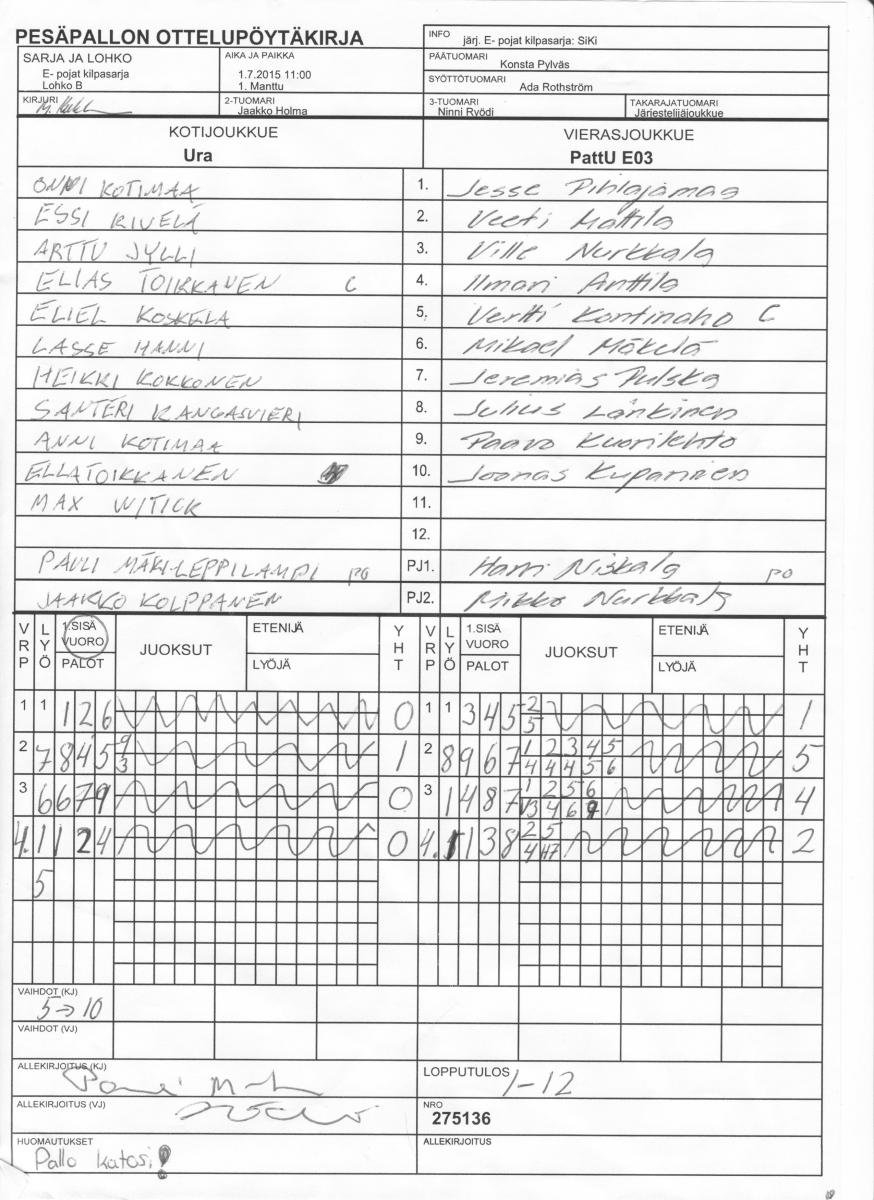 PESÄPALLON OTTELUPÖYTÄKIRJA
INFO järj. E- pojat kilpasarja: SiKi
SARJA JA LOHKO
E- pojat kilpasarja
Lohko B
AIKA JA PAIKKA
1.7.2015 11:00
1. Manttu
PÄÄTUOMARI
Konsta Pylväs
SYÖTTÖTUOMARI
Ada Rothström
KIRJURI
2-TUOMARI
Jaakko Holma
3-TUOMARI
Ninni Ryödi
TAKARAJATUOMARI
Järjestelijäjoukkue
KOTIJOUKKUE
Ura
VIERASJOUKKUE
PattU E03
ONNI KOTIMAA 1. Jesse Pihlajamaa
ESSI KIVELÄ 2. Veeti Mattila
ARTTU JYLLI 3. Ville Nurkkala
ELIAS TOIKKANEN C 4. Ilmari Anttila
ELIEL KOSKELA 5. Vertti Kontinaho C
LASSE HANNI 6. Mikael Mäkelä
HEIKKI KOKKONEN 7. Jeremias Pulska
SANTERI KANGASVIERI 8. Julius Länkinen
ANNI KOTIMAA 9. Paavo Kuorilehto
ELLA TOIKKANEN 10. Joonas Kupaninen
MAX WITICK 11.
12.
PAULI MÄKI-LEPPILAMPI PO PJ1. Harri Niskala PO
JAAKKO KOLPPANEN PJ2. Mikko Nurkkala
VRP LYÖ 1.SISÄ VUORO PALOT JUOKSUT ETENIJÄ LYÖJÄ YHT VRP LYÖ 1.SISÄ VUORO PALOT JUOKSUT ETENIJÄ LYÖJÄ YHT
1 1 1 2 6 0 1 1 3 4 5 2/5 1
2 7 8 4 5 9/3 1 2 8 9 6 7 1/4 2/4 3/4 4/5 5/6 5
3 6 6 7 9 0 3 1 4 8 7 1/3 2/4 5/6 6/9 4
4. 1 1 2 4 0 4. 1 1 3 8 2/4 5/H7 2
5
VAIHDOT (KJ)
5→10
VAIHDOT (VJ)
ALLEKIRJOITUS (KJ)
LOPPUTULOS 1-12
ALLEKIRJOITUS (VJ)
NRO
275136
HUOMAUTUKSET
Pallo katosi!
ALLEKIRJOITUS